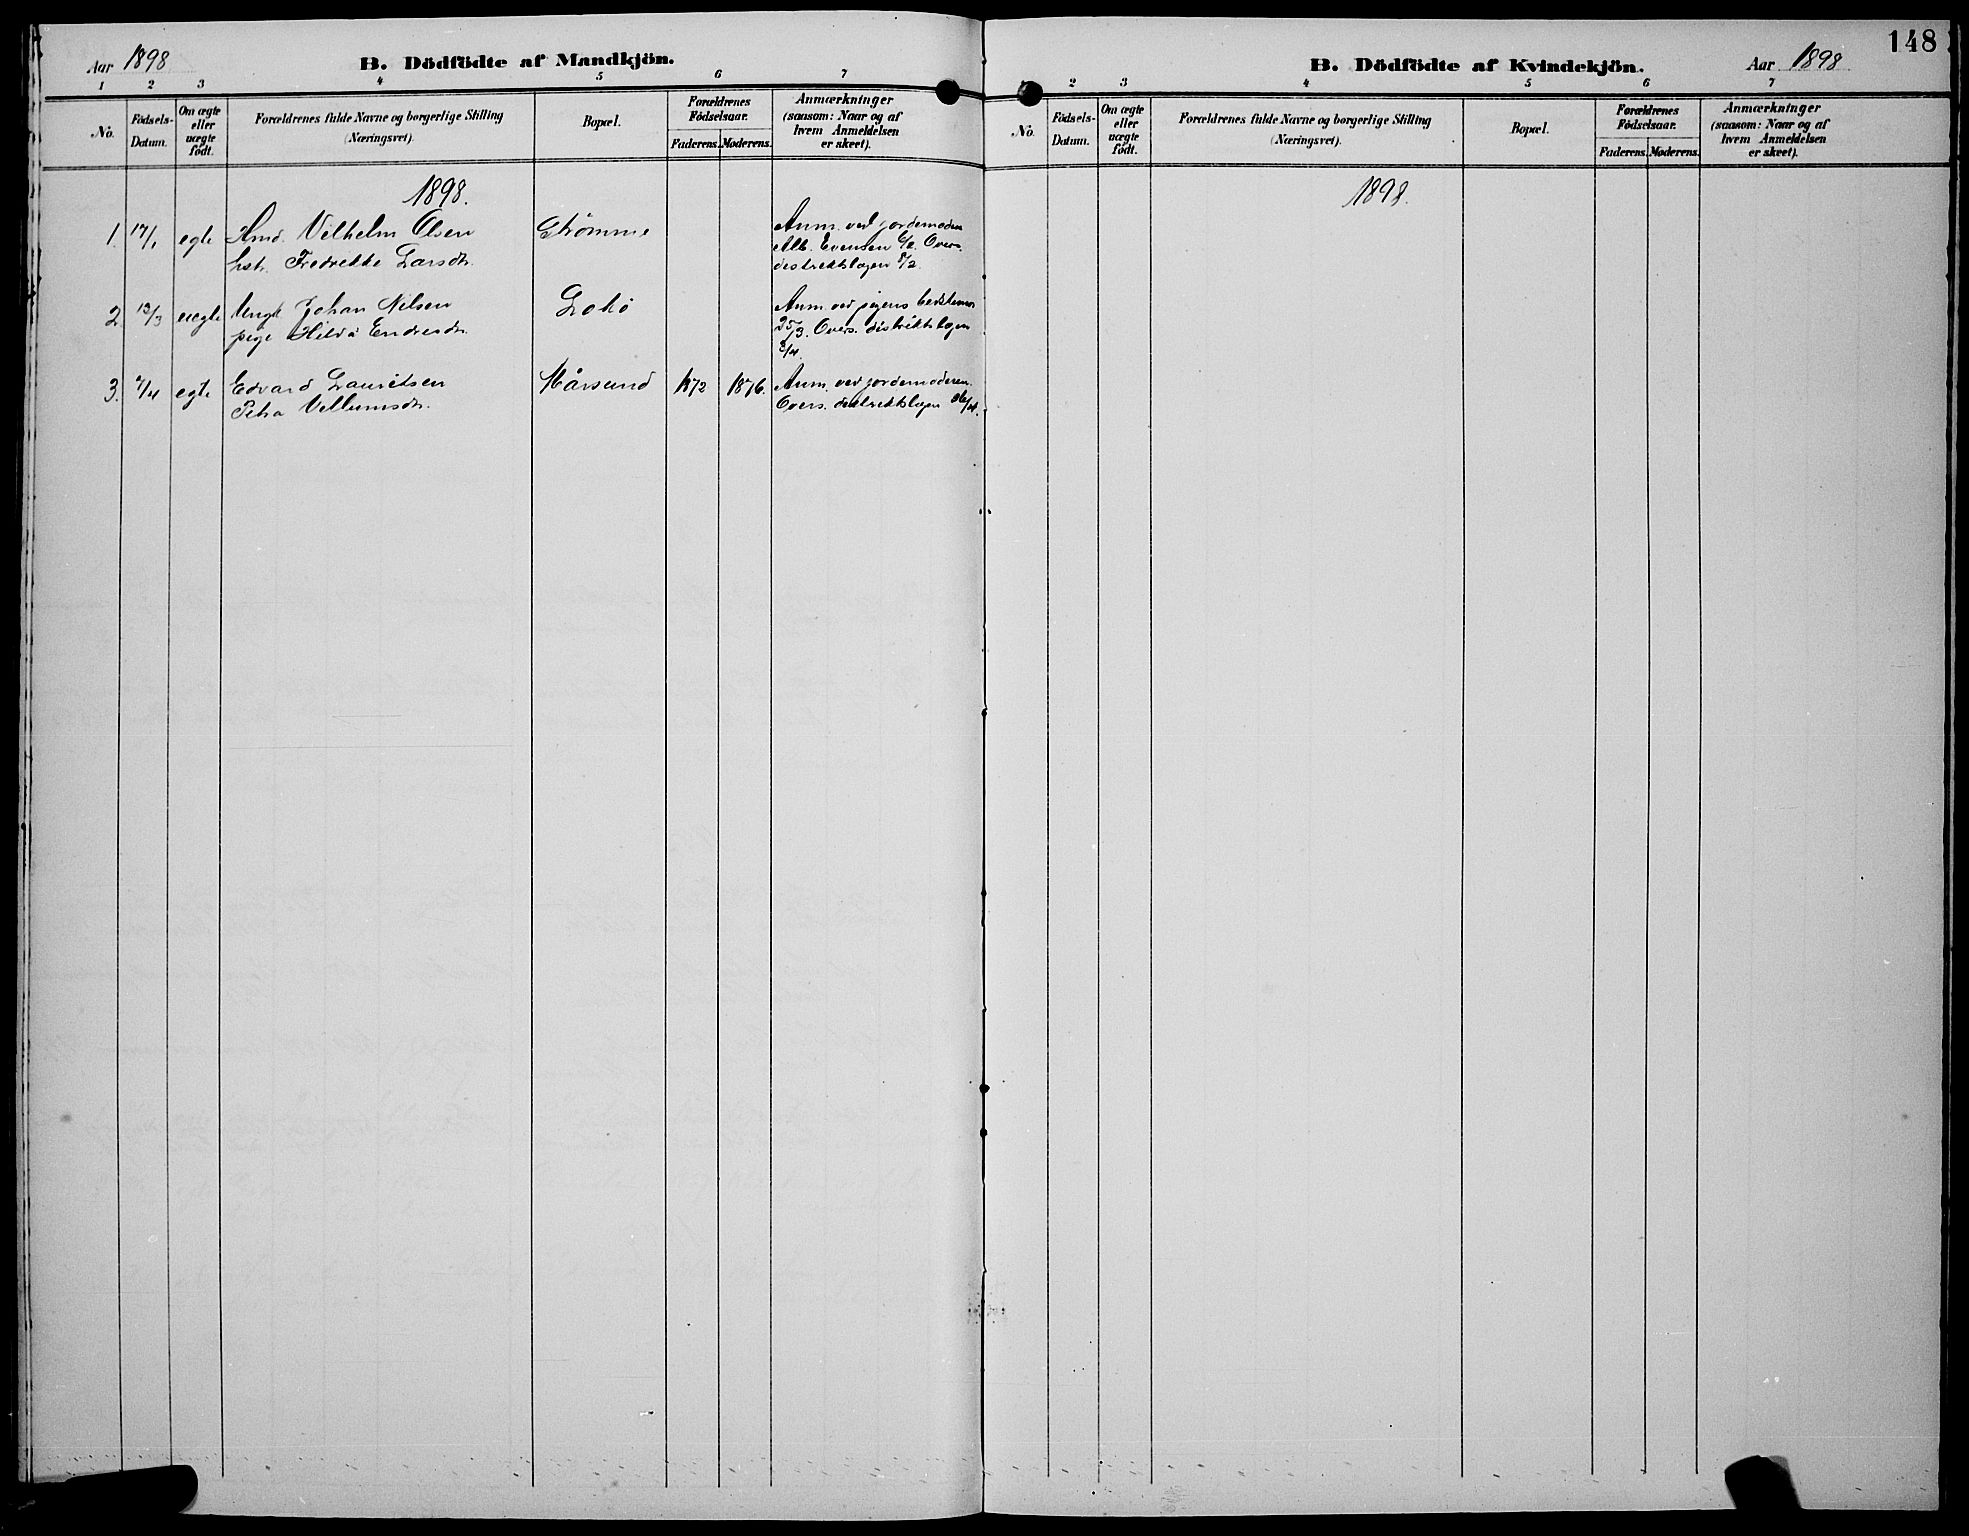 Aar 1898
B. Dödfödte af Mandkjön.
1 2 3 4 5 6 7
No.
Födsels-Datum.
Om ægte eller uægte födt.
Forældrenes fulde Navne og borgerlige Stilling (Næringsvei).
Bopæl.
Forældrenes Födselsaar.
Faderens. Moderens.
Anmærkninger (saasom: Naar og af hvem Anmeldelsen er skeet).
1898.
1. 17/1 egte Kmd. Vilhelm Olsen Strømme Anm. ved jordemoder
hstr. Fredrikke Larsdr. Alb. Evensen 6/2. Overs.
distriktslægen 8/2.
2 13/3 uegte Ungk. Johan Nilsen Anm. ved pigens bedstemor
pige Hilda Endresdr. 25/3. Overs. distriktslægen
2/4.
3. 7/4 egte Edvard Lauritsen Mårsund 1872 1876. Anm. ved jordemoderen.
Petra Vellumsdr. Overs. distriktslægen 26/4.
148
B. Dödfödte af Kvindekjön.
Aar 1898
2 3 4 5 6 7
No.
Födsels-Datum.
Om ægte eller uægte födt.
Forældrenes fulde Navne og borgerlige Stilling (Næringsvei).
Bopæl.
Forældrenes Födselsaar.
Faderens. Moderens.
Anmærkninger (saasom: Naar og af hvem Anmeldelsen er skeet).
1898.